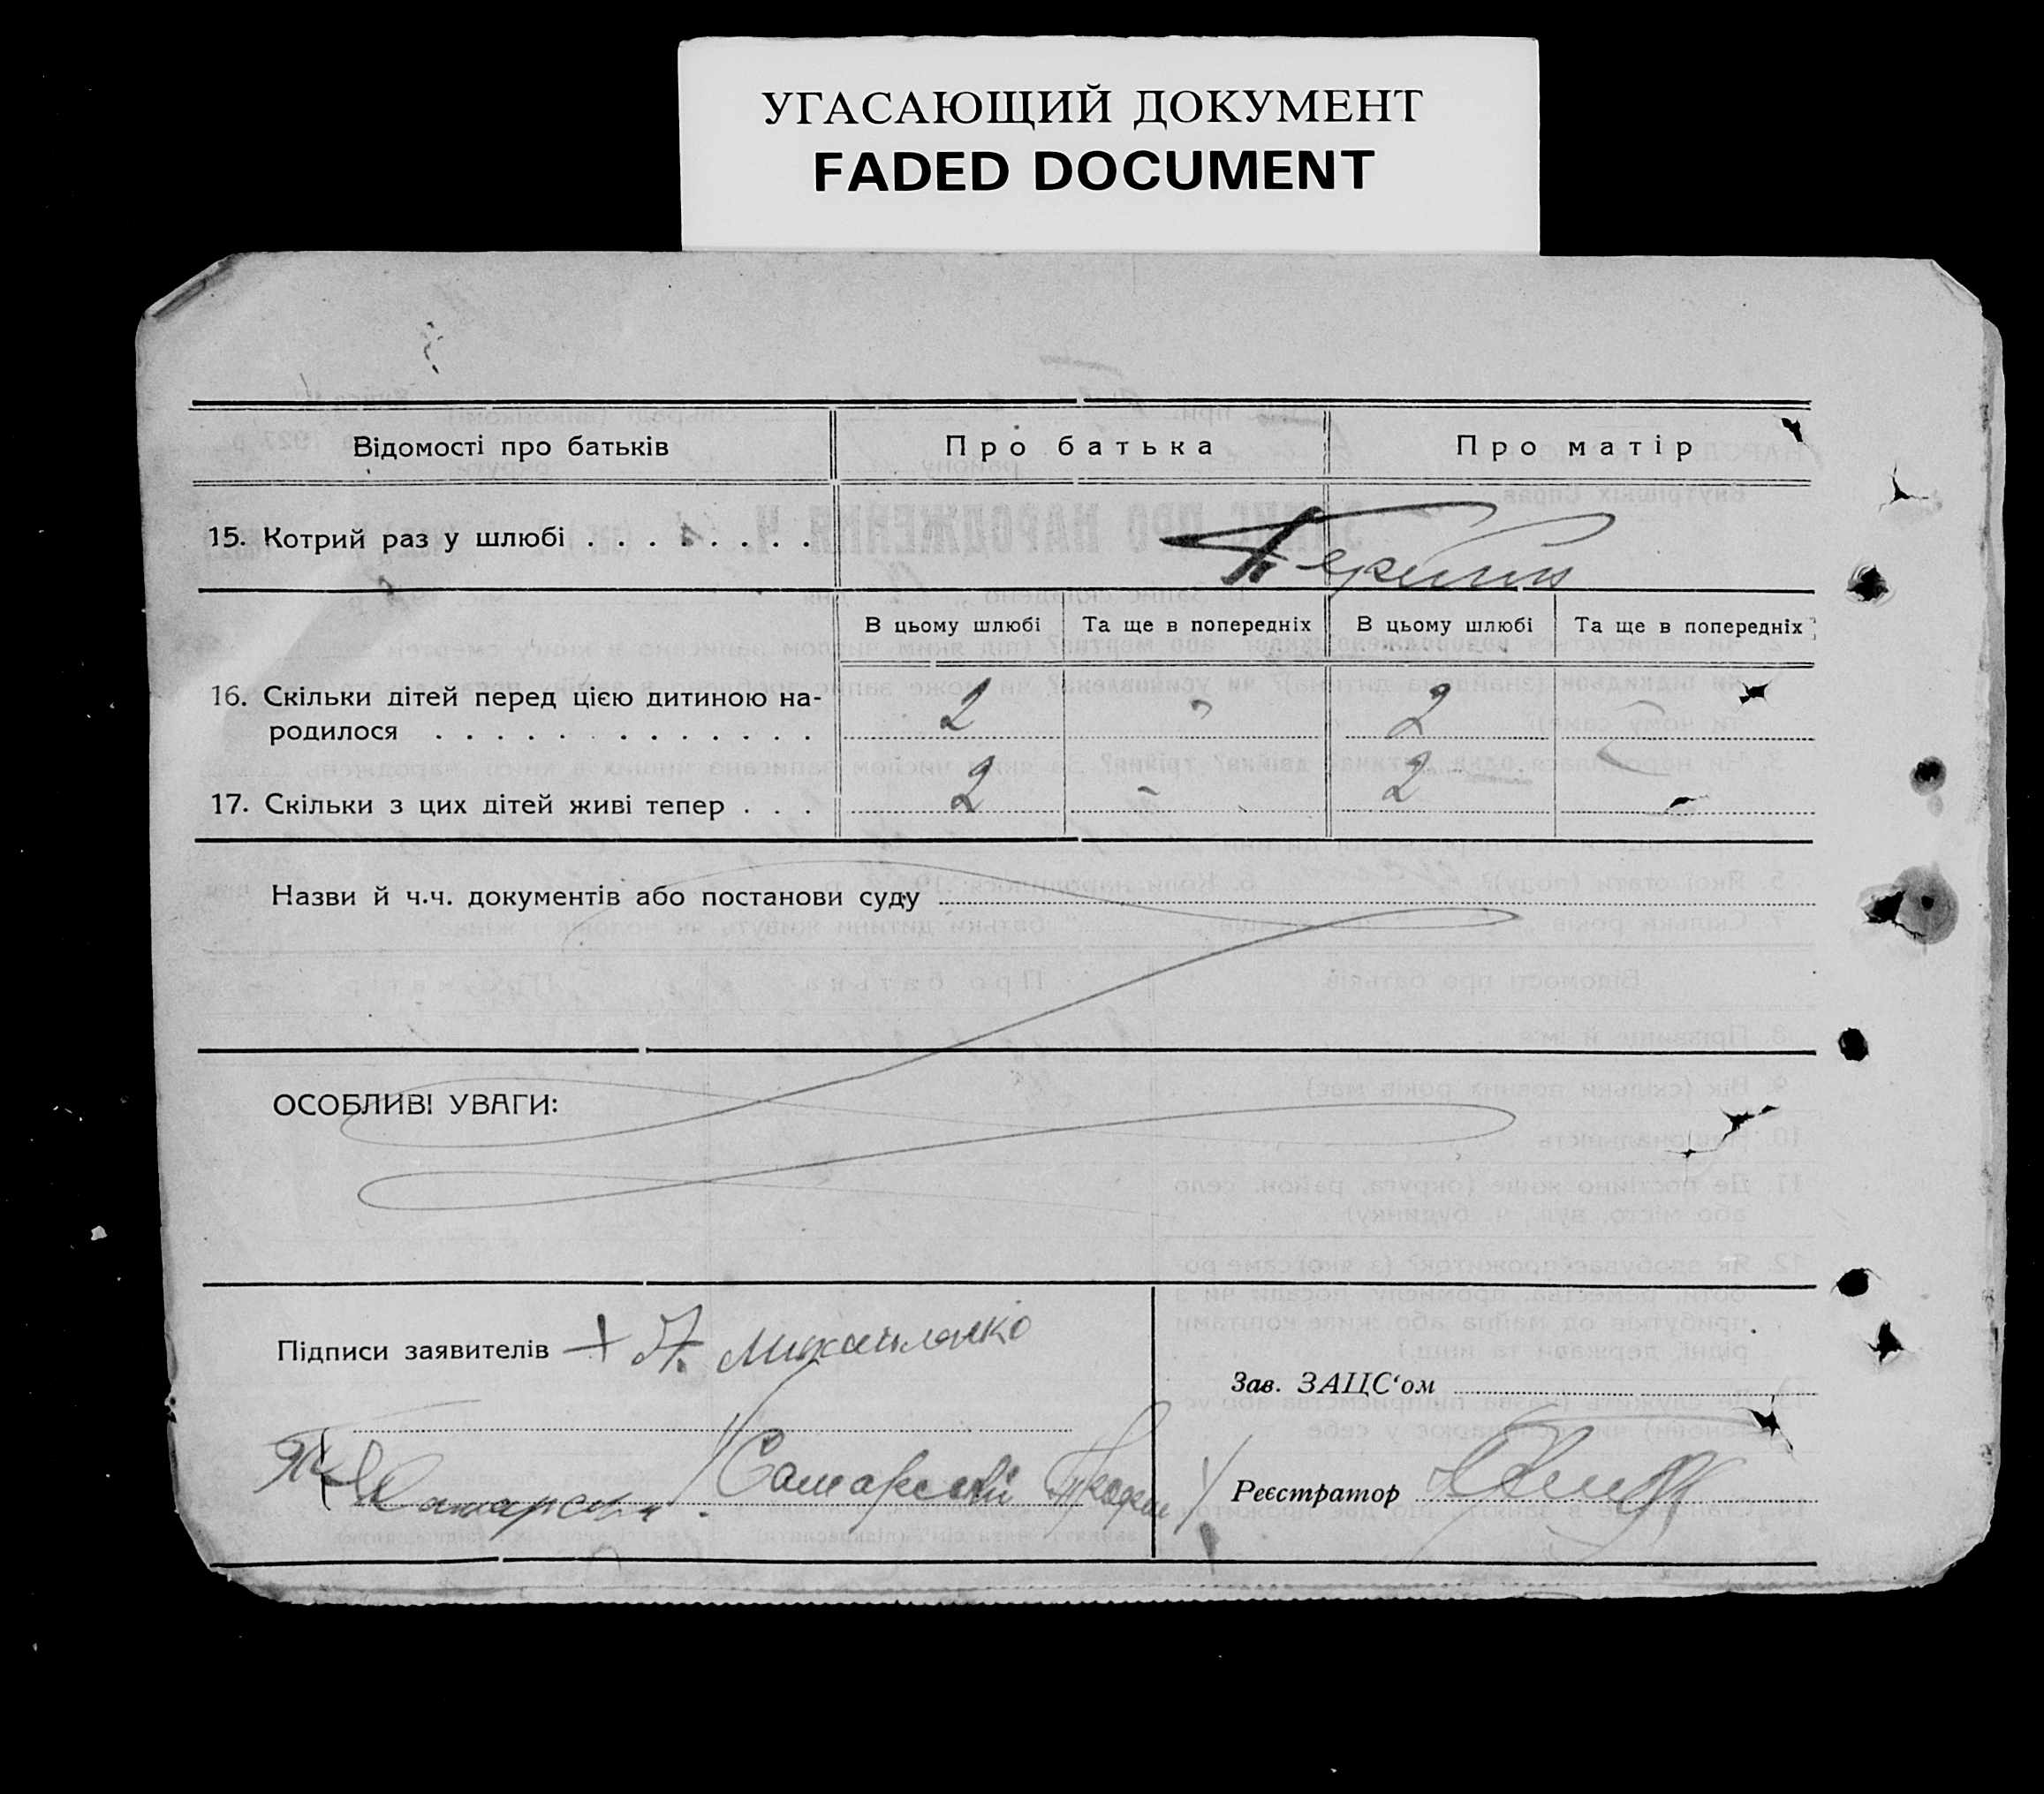 УГАСАЮЩИЙ ДОКУМЕНТ
FADED DOCUMENT
Відомості про батьків Про батька Про матір
15. Котрий раз у шлюбі . . . . . . . Первий
В цьому шлюбі Та ще в попередніх В цьому шлюбі Та ще в попередніх
16. Скільки дітей перед цією дитиною на-
родилося . . . . . . . . . . . . . 2 - 2 -
17. Скільки з цих дітей живі тепер . . . 2 - 2 -
Назви й ч.ч. документів або постанови суду
ОСОБЛИВІ УВАГИ:
Підписи заявителів + Н. Михайленко
Зав. ЗАЦС‘ом
Самарский
Реєстратор